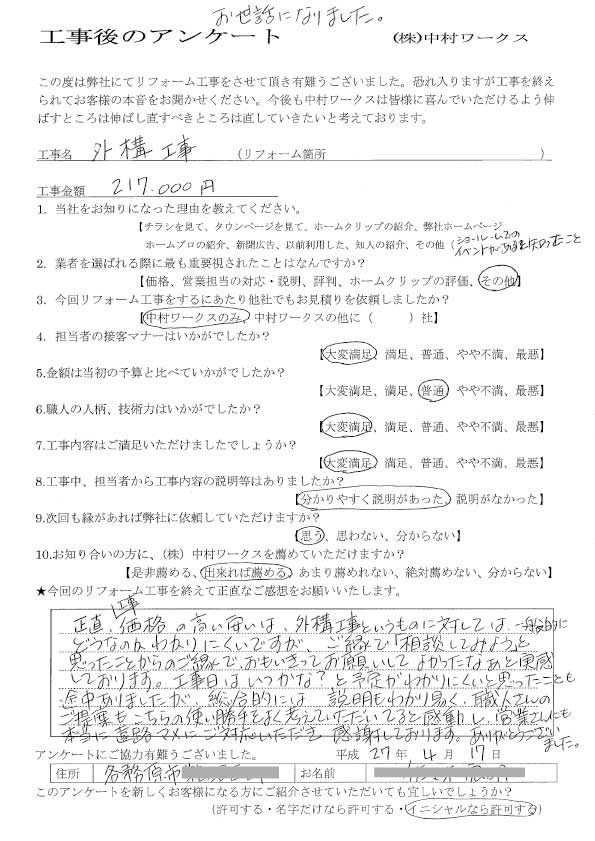 お世話になりました。
工事後のアンケート (株)中村ワークス
この度は弊社にてリフォーム工事をさせて頂き有難うございました。恐れ入りますが工事を終え
られてお客様の本音をお聞かせください。今後も中村ワークスは皆様に喜んでいただけるよう伸
ばすところは伸ばし直すべきところは直していきたいと考えております。
工事名 外構工事 (リフォーム箇所 )
工事金額 217.000円
1. 当社をお知りになった理由を教えてください。
【チラシを見て、タウンページを見て、ホームクリップの紹介、弊社ホームページ
ホームプロの紹介、新聞広告、以前利用した、知人の紹介、その他(ショールームでの
イベントがあるを知ったこと
2. 業者を選ばれる際に最も重要視されたことはなんですか?
【価格、営業担当の対応・説明、評判、ホームクリップの評価、その他】
3. 今回リフォーム工事をするにあたり他社でもお見積りを依頼しましたか?
【中村ワークスのみ、中村ワークスの他に( )社】
4. 担当者の接客マナーはいかがでしたか?
【大変満足、満足、普通、やや不満、最悪】
5.金額は当初の予算と比べていかがでしたか?
【大変満足、満足、普通、やや不満、最悪】
6.職人の人柄、技術力はいかがでしたか?
【大変満足、満足、普通、やや不満、最悪】
7.工事内容はご満足いただけましたでしょうか?
【大変満足、満足、普通、やや不満、最悪】
8.工事中、担当者から工事内容の説明等はありましたか?
【分かりやすく説明があった、説明がなかった】
9.次回も縁があれば弊社に依頼していただけますか?
【思う、思わない、分からない】
10.お知り合いの方に、(株)中村ワークスを薦めていただけますか?
【是非薦める、出来れば薦める、あまり薦めれない、絶対薦めない、分からない】
★今回のリフォーム工事を終えて正直なご感想をお願いいたします。
正直、工事価格の高い安いは、外構工事というものに対しては、一般的に
どうなのかわかりにくいですが、ご縁で「相談してみよう」と
思ったことからのご縁で、おもいきってお願いしてよかったなあと実感
しております。工事日はいつかな?と予定がわかりにくいと思ったことも
途中ありましたが、総合的には、説明もわかり易く、職人さんの
ご提案もこちらの使い勝手をよく考えていただいてると感動し、営業さんにも
本当に Mメにご対応いただき感謝しております。ありがとうござい
ました。
アンケートにご協力有難うございました。 平成 27年 4月 17日
住所 各務原市 お名前
このアンケートを新しくお客様になる方にご紹介させていただいても宜しいでしょうか?
(許可する・名字だけなら許可する・イニシャルなら許可する)